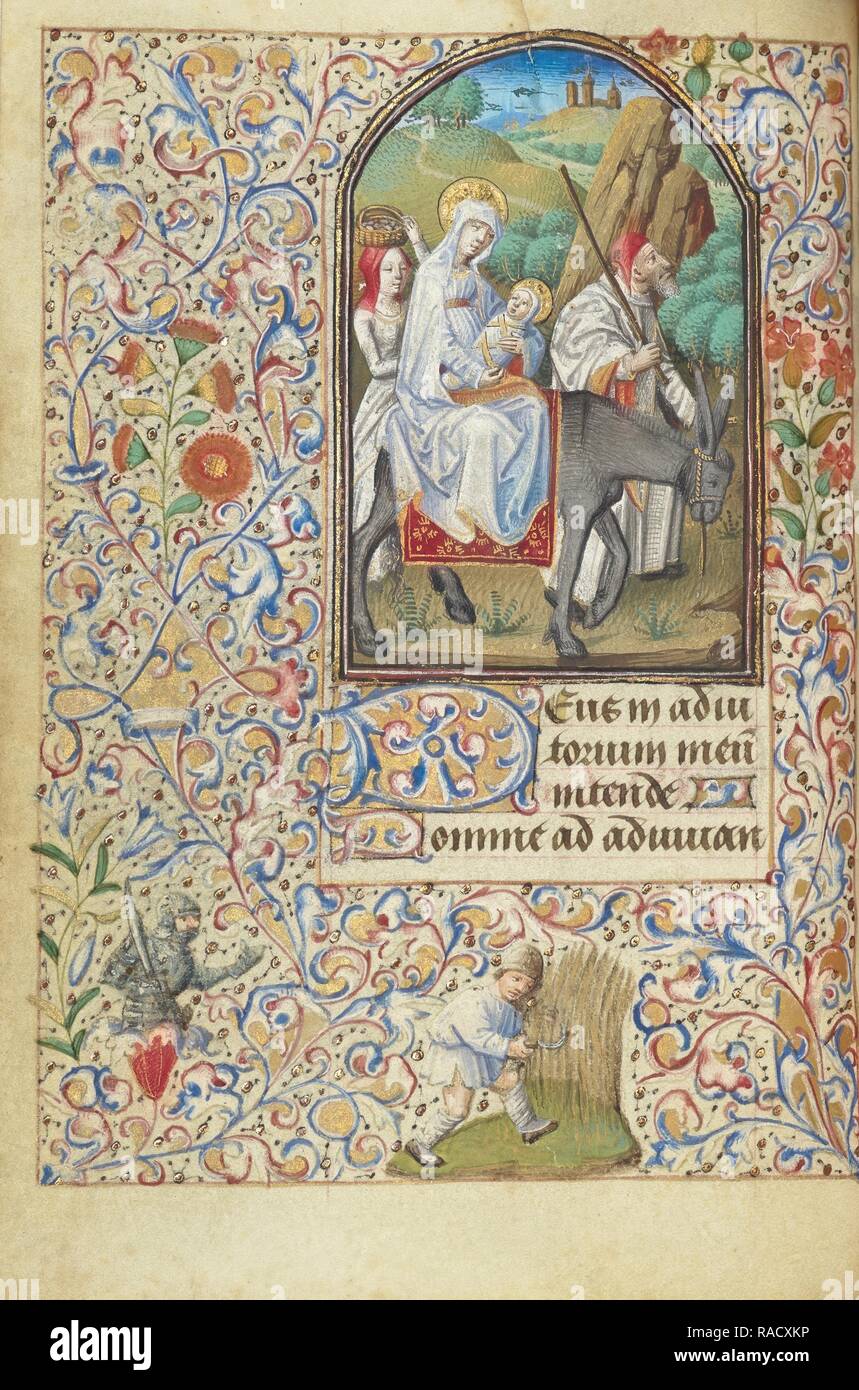 Deus in adiu
torium meū
intende
Domine ad adiuuan
alamy
Image ID: RACXKP
www.alamy.com